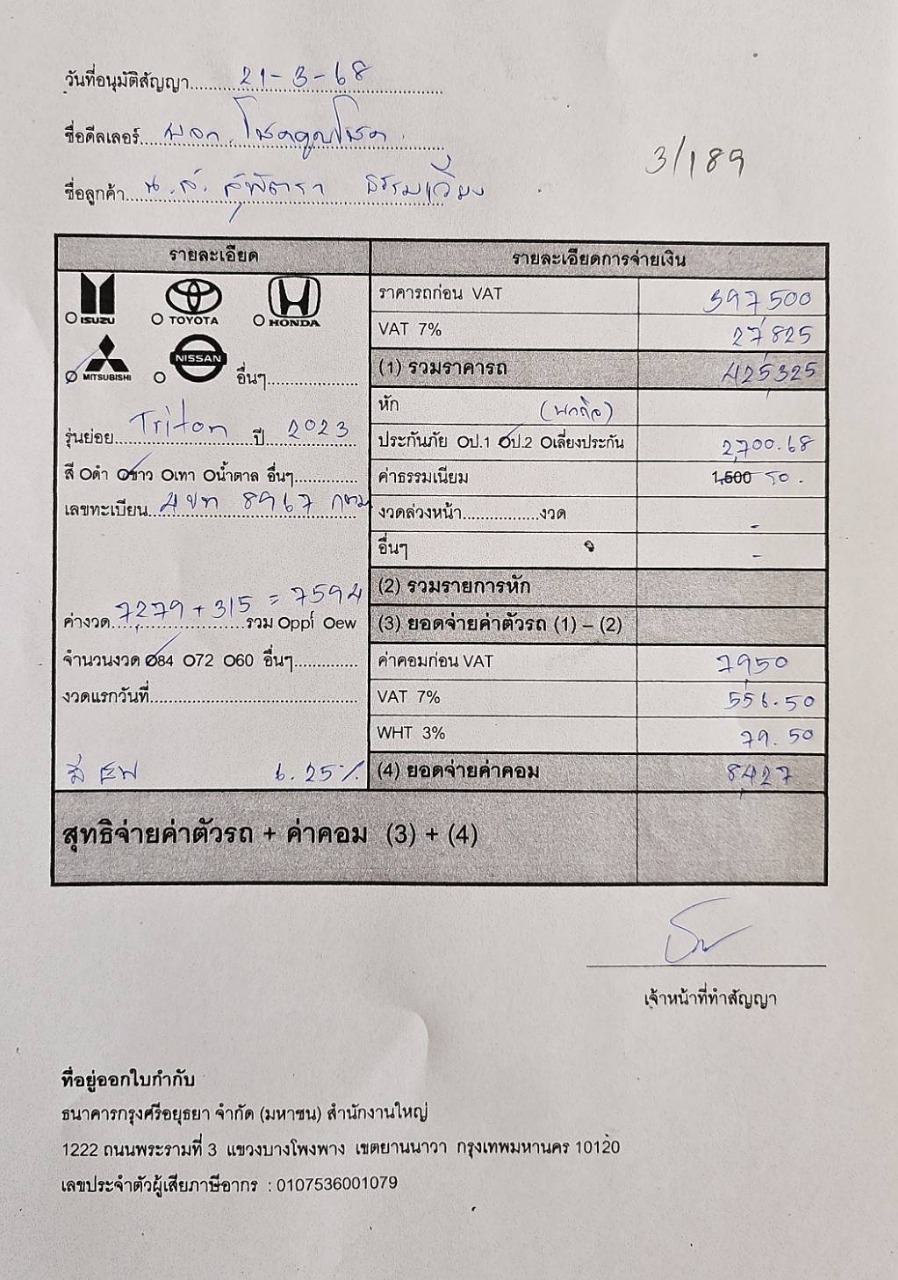 วันที่อนุมัติสัญญา 21-3-68
ชื่อดีลเลอร์ บจก. โชคคูณโชค
3/189
ชื่อลูกค้า น.ส. สุพัตรา ธรรมเวียง
รายละเอียด
รายละเอียดการจ่ายเงิน
ISUZU TOYOTA HONDA
MITSUBISHI NISSAN อื่นๆ
รุ่นย่อย Triton ปี 2023
สี ดำ ขาว เทา น้ำตาล อื่นๆ
เลขทะเบียน 4ขท 8967 กทม
ค่างวด 7,279 + 315 = 7594 รวม ppi ew
จำนวนงวด 84 72 60 อื่นๆ
งวดแรกวันที่
6.25%
ราคารถก่อน VAT 397,500
VAT 7% 27,825
(1) รวมราคารถ 425,325
หัก
ประกันภัย ป.1 ป.2 เลี่ยงประกัน 2,700.68
ค่าธรรมเนียม 1,500 50.
งวดล่วงหน้า งวด -
อื่นๆ -
(2) รวมรายการหัก
(3) ยอดจ่ายค่าตัวรถ (1) – (2)
ค่าคอมก่อน VAT 7,950
VAT 7% 556.50
WHT 3% 79.50
(4) ยอดจ่ายค่าคอม 8,427
สุทธิจ่ายค่าตัวรถ + ค่าคอม (3) + (4)
เจ้าหน้าที่ทำสัญญา
ที่อยู่ออกใบกำกับ
ธนาคารกรุงศรีอยุธยา จำกัด (มหาชน) สำนักงานใหญ่
1222 ถนนพระรามที่ 3 แขวงบางโพงพาง เขตยานนาวา กรุงเทพมหานคร 10120
เลขประจำตัวผู้เสียภาษีอากร : 0107536001079